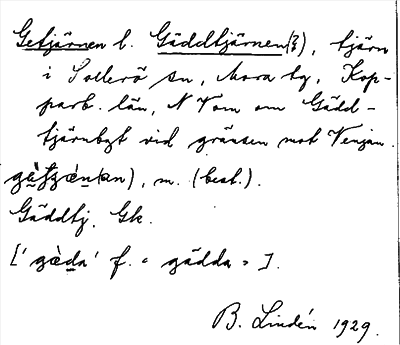 Getjärnen l. Gäddtjärnen(?), tjärn
i Sollerö sn, Mora tg, Kop-
parb. län, N Vom om Gädd-
tjärnbgt vid gränsen mot Venjan.
(an), m. (best.).
Gäddtj. Gk.
[' gä̀da' f. = gädda = ].
B. Lindén 1929.